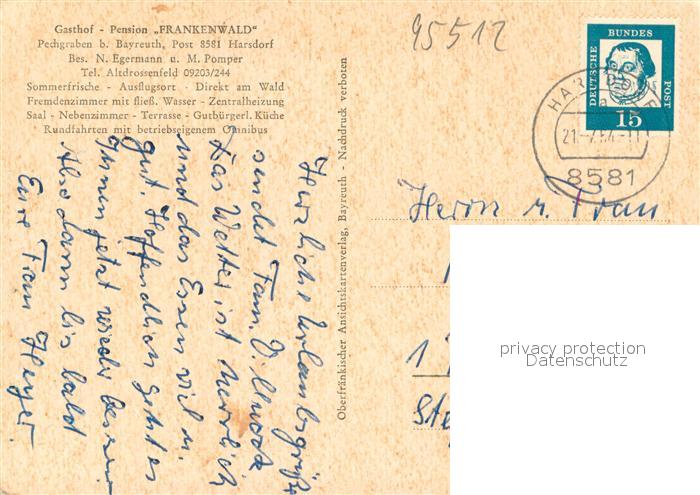 Gasthof - Pension „FRANKENWALD“
Pechgraben b. Bayreuth, Post 8581 Harsdorf
Bes. N. Egermann u. M. Pomper
Tel. Altdrossenfeld 09203/244
Sommerfrische - Ausflugsort - Direkt am Wald
Fremdenzimmer mit fließ. Wasser - Zentralheizung
Saal - Nebenzimmer - Terrasse - Gutbürgerl. Küche
Rundfahrten mit betriebseigenem Omnibus
Herzliche Urlaubsgrüße
sendet Fam.
Das Wetter ist herrlich
und das Essen viel u.
gut. Hoffendlich geht es
Ihnen jetzt wieder besser.
Also dann bis bald
Eure Frau Heyer.
Oberfränkischer Ansichtskartenverlag, Bayreuth - Nachdruck verboten
95512
DEUTSCHE BUNDES POST
15
8581
Herrn u. Frau
1
privacy protection
Datenschutz